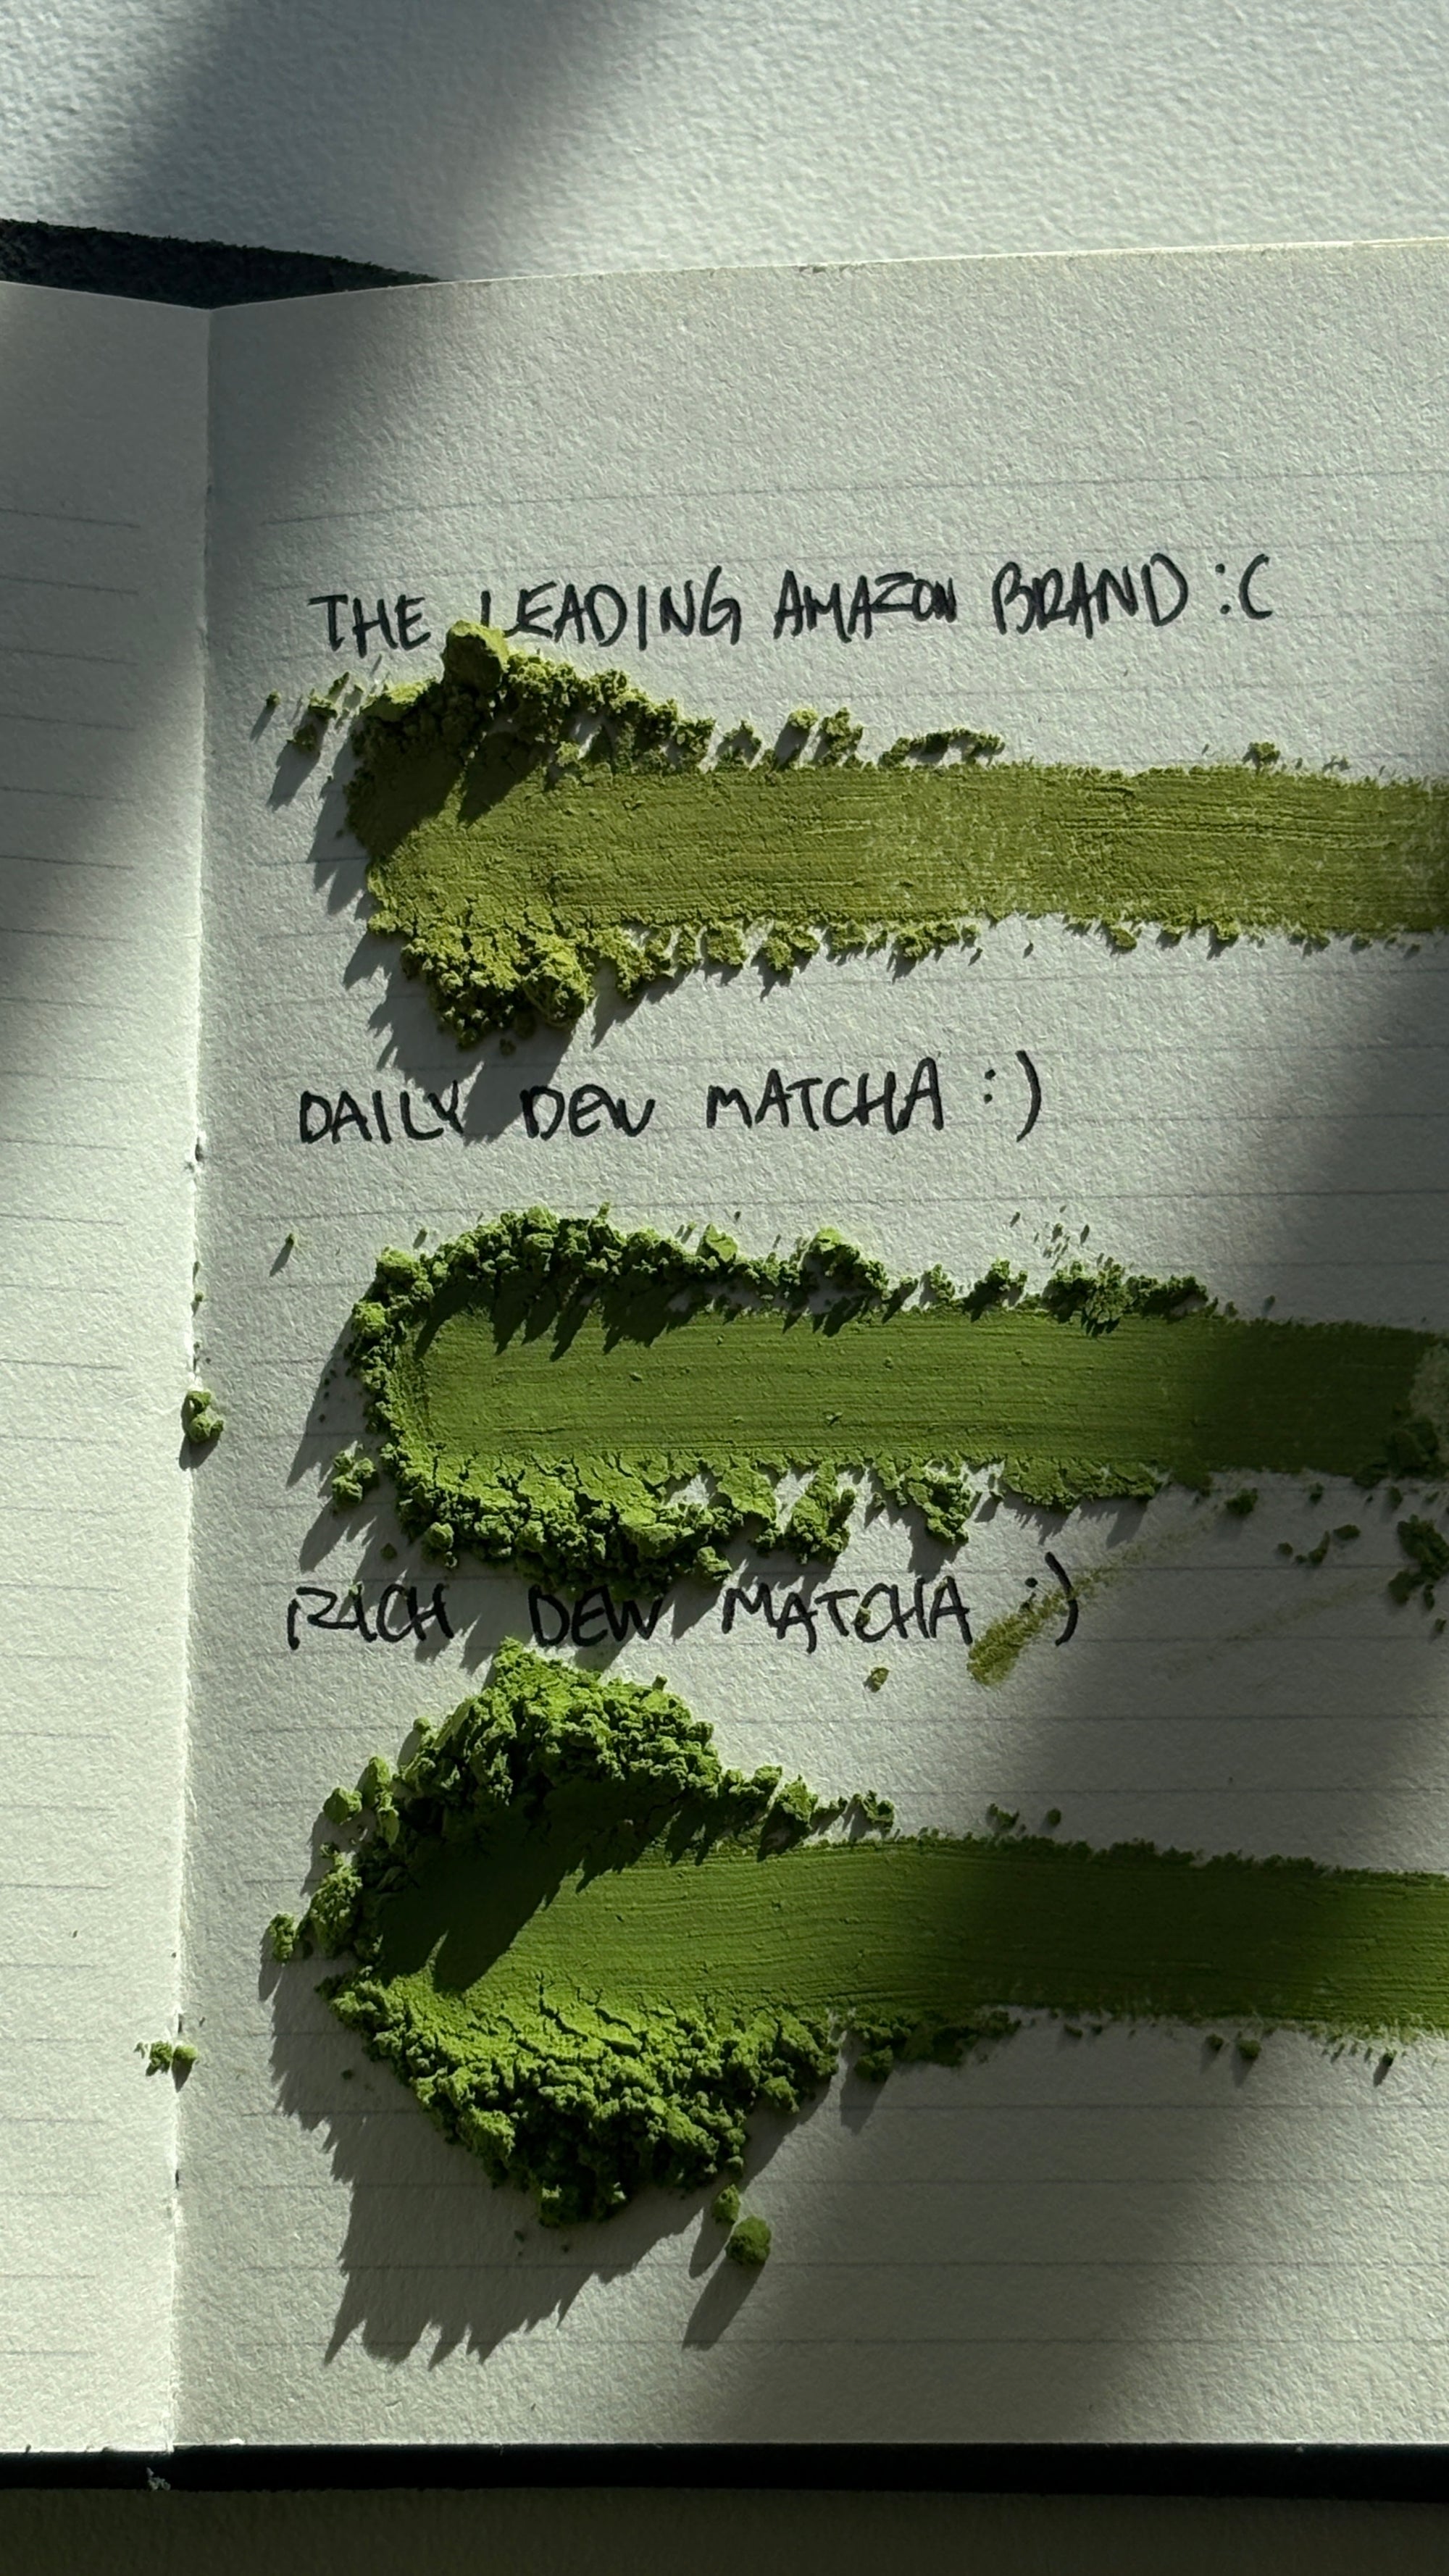 THE LEADING AMAZON BRAND :C
DAILY DEW MATCHA :)
RICH DEW MATCHA :)